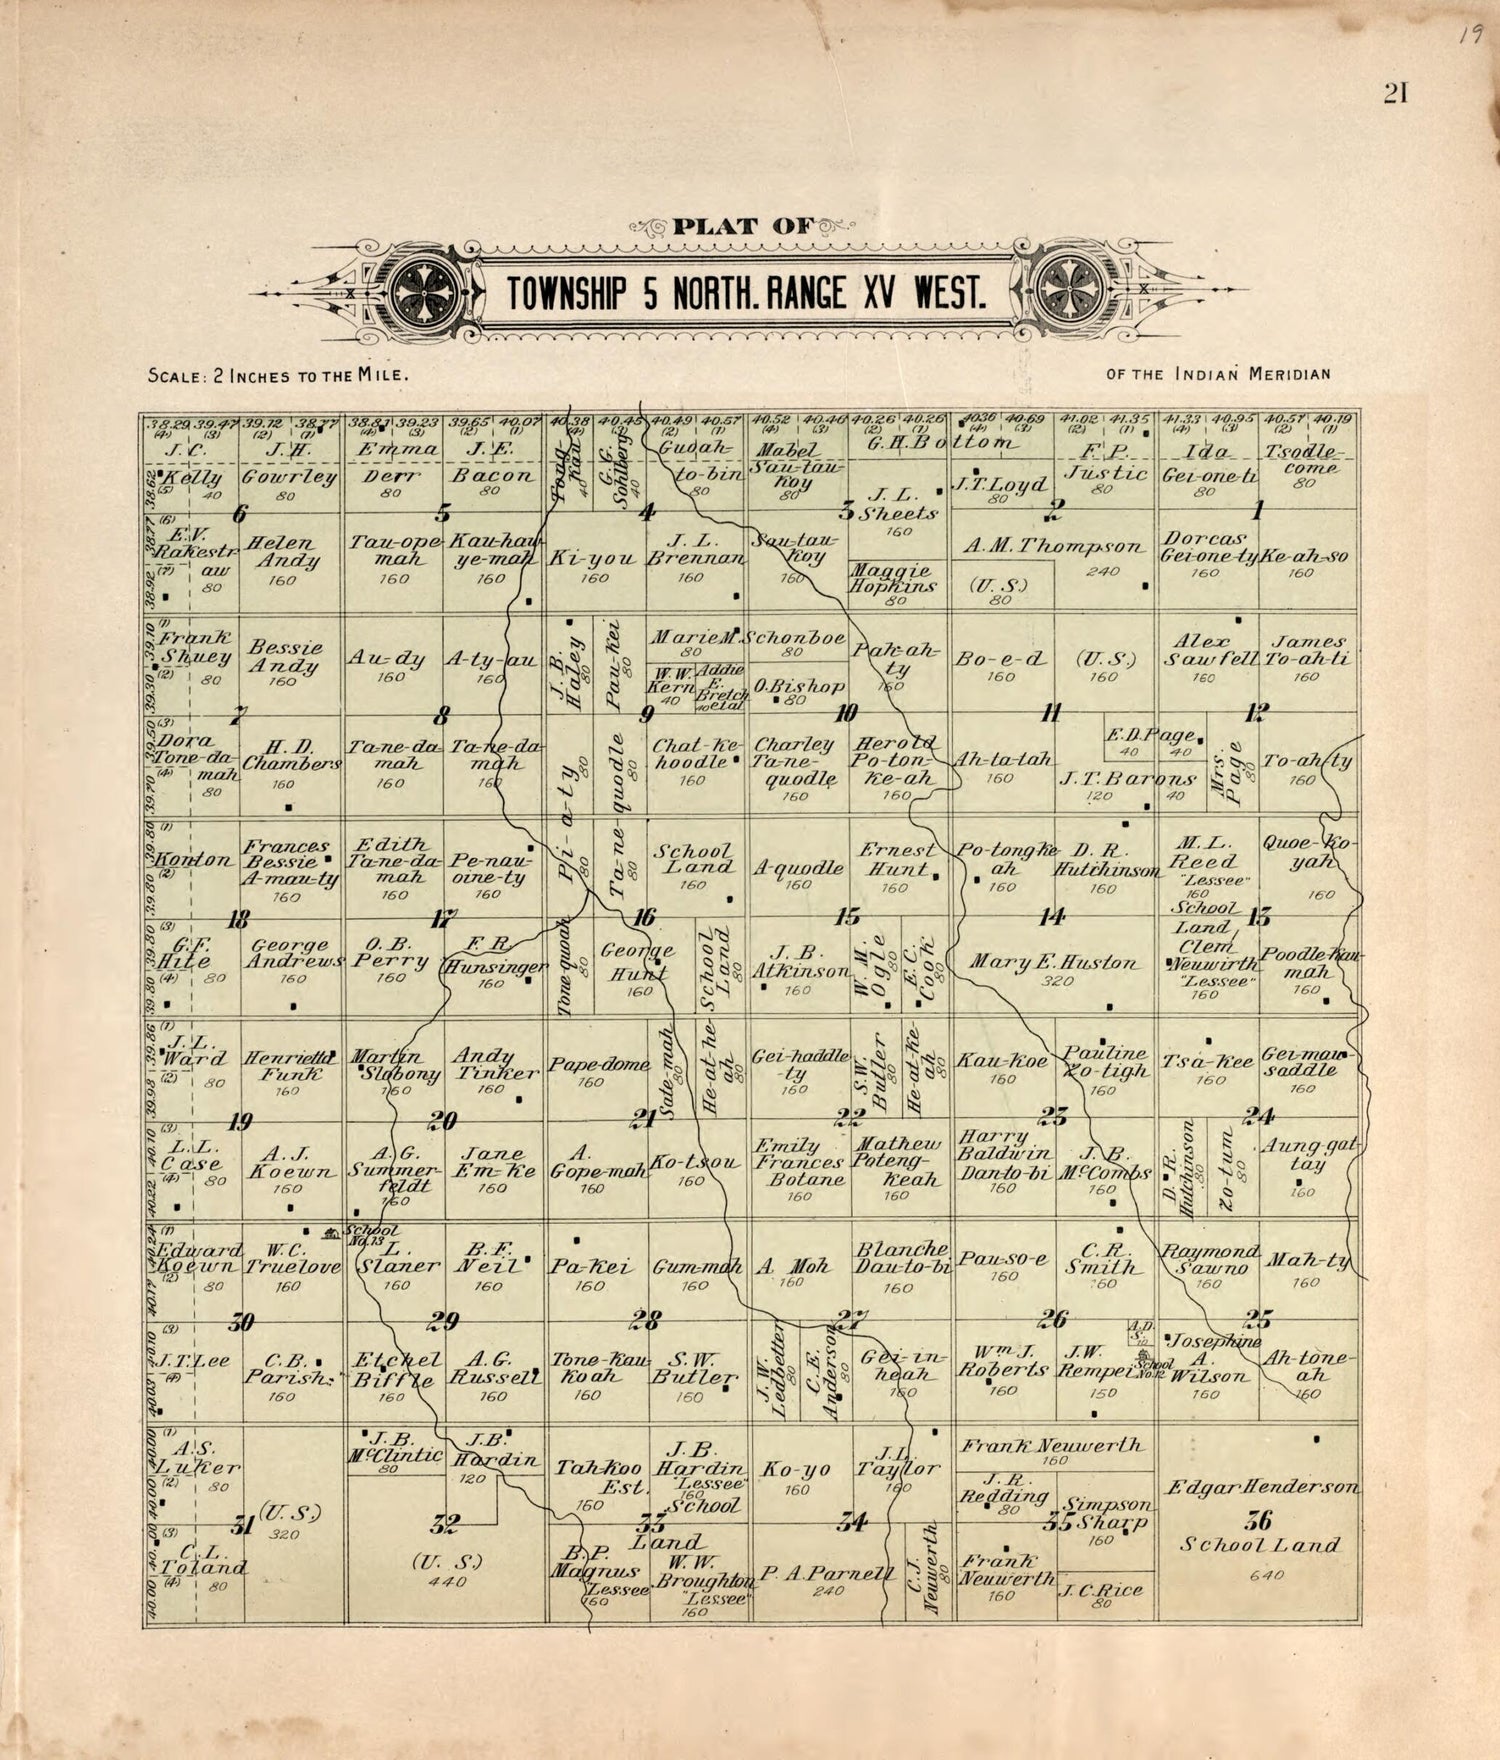 19
21
PLAT OF
TOWNSHIP 5 NORTH. RANGE XV WEST.
SCALE: 2 INCHES TO THE MILE.
OF THE INDIAN MERIDIAN
38.29 39.47 39.12 38.77 38.81 39.23 39.65 40.07 40.38 40.45 40.49 40.57 40.52 40.46 40.26 40.26 40.36 40.69 41.02 41.35 41.33 40.95 40.57 40.19
(4) (3) (2) (1) (4) (3) (2) (1) (4) (3) (2) (1) (4) (3) (2) (1) (4) (3) (2) (1) (4) (3) (2) (1)
J.C. Kelly 40
J.H. Gowrley 80
Emma Derr 80
J.E. Bacon 80
Tong-Kau 40
G.G. Sohlberg 40
Guoah-to-bin 80
Mabel Sau-tau-Koy 80
G.H. Bottom
J.L. Sheets 160
J.T. Loyd 80
F.P. Justic 80
Ida Gei-one-ti 80
Tsodle-come 80
6 5 4 3 2 1
E.V. Rakestraw 80
Helen Andy 160
Tau-ope-mah 160
Kau-hau-ye-mah 160
Ki-you 160
J.L. Brennan 160
Sau-tau-Koy 160
Maggie Hopkins 80
A.M. Thompson 240
(U.S.) 80
Dorcas Gei-one-ty 160
Ke-ah-so 160
Frank Shuey 80
Bessie Andy 160
Au-dy 160
A-ty-au 160
J.B. Haley 80
Pau-kei 80
Marie M. Schonboe 80 80
W.W. Kern 40
Addie E. Bretch et al 40
O. Bishop 80
Pah-ah-ty 160
Bo-e-d 160
(U.S.) 160
Alex Sawfell 160
James To-ah-ti 160
7 8 9 10 11 12
Dora Tone-da-mah 80
H.D. Chambers 160
Ta-ne-da-mah 160
Ta-ne-da-mah 160
Pi-a-ty 80 80
Ta-ne-quodle 80 80
Chat-ke-hoodle 160
Charley Ta-ne-quodle 160
Herold Po-ton-ke-ah 160
Ah-ta-tah 160
E.D. Page 40 40
J.T. Barons 120 40
Mrs. Page 80
To-ah-ty 160
Konton
Frances Bessie A-mau-ty 160
Edith Ta-ne-da-mah 160
Pe-nau-oine-ty 160
School Land 160
A-quodle 160
Ernest Hunt 160
Po-tong-ke-ah 160
D.R. Hutchinson 160
M.L. Reed "Lessee" 160
Quoe-Ko-yah 160
18 17 16 15 14 13
G.F. Hite 80
George Andrews 160
O.B. Perry 160
F.R. Hunsinger 160
Tone-quoah 80
George Hunt 160
School Land 80
J.B. Atkinson 160
W.M. Ogle 80
E.C. Cook 80
Mary E. Huston 320
School Land, Clem Neuwirth "Lessee" 160
Poodle-Kau-mah 160
J.L. Ward 80
Henrietta Funk 160
Martin Slabony 160
Andy Tinker 160
Pape-dome 160
Sate-mah 80
He-at-he-ah 80
Gei-haddle-ty 160
S.W. Butler 80
He-at-ke-ah 80
Kau-koe 160
Pauline Zo-tigh 160
Tsa-kee 160
Gei-mau-saddle 160
19 20 21 22 23 24
L.L. Case 80
A.J. Koewn 160
A.G. Summer-feldt 160
Jane Em-Ke 160
A. Gope-mah 160
Ko-tsou 160
Emily Frances Botane 160
Mathew Poteng-keah 160
Harry Baldwin Dan-to-bi 160
J.B. McCombs 160
D.R. Hutchinson 80
Zo-tum 80
Aung-gat-tay 160
Edward Koewn 80
W.C. Truelove 160
School No. 13
L. Slaner 160
B.F. Neil 160
Pa-kei 160
Gum-mah 160
A Moh 160
Blanche Dau-to-bi 160
Pau-so-e 160
C.R. Smith 160
Raymond Sawno 160
Mah-ty 160
30 29 28 27 26 25
J.T. Lee
C.B. Parish 160
Etchel Biffle 160
A.G. Russell 160
Tone-kau-koah 160
S.W. Butler 160
J.W. Ledbetter 80
C.E. Anderson 80
Gei-in-heah 160
Wm J. Roberts 160
J.W. Rempei 150
School No. 12
Josephine A. Wilson 160
Ah-tone-ah 160
A.S. Luker 80
(U.S.) 320
J.B. McClintic 80
J.B. Hardin 120
Tah-koo Est. 160
J.B. Hardin "Lessee" 160
Ko-yo 160
J.L. Taylor 160
Frank Neuwerth 160
J.R. Redding 80
Simpson Sharp 160
Edgar Henderson
31 32 33 34 35 36
C.L. Toland 80
(U.S.) 440
School Land
B.P. Magnus "Lessee" 160
W.W. Broughton "Lessee" 160
P.A. Parnell 240
C.J. Neuwerth 80
Frank Neuwerth 160
J.C. Rice 80
School Land 640